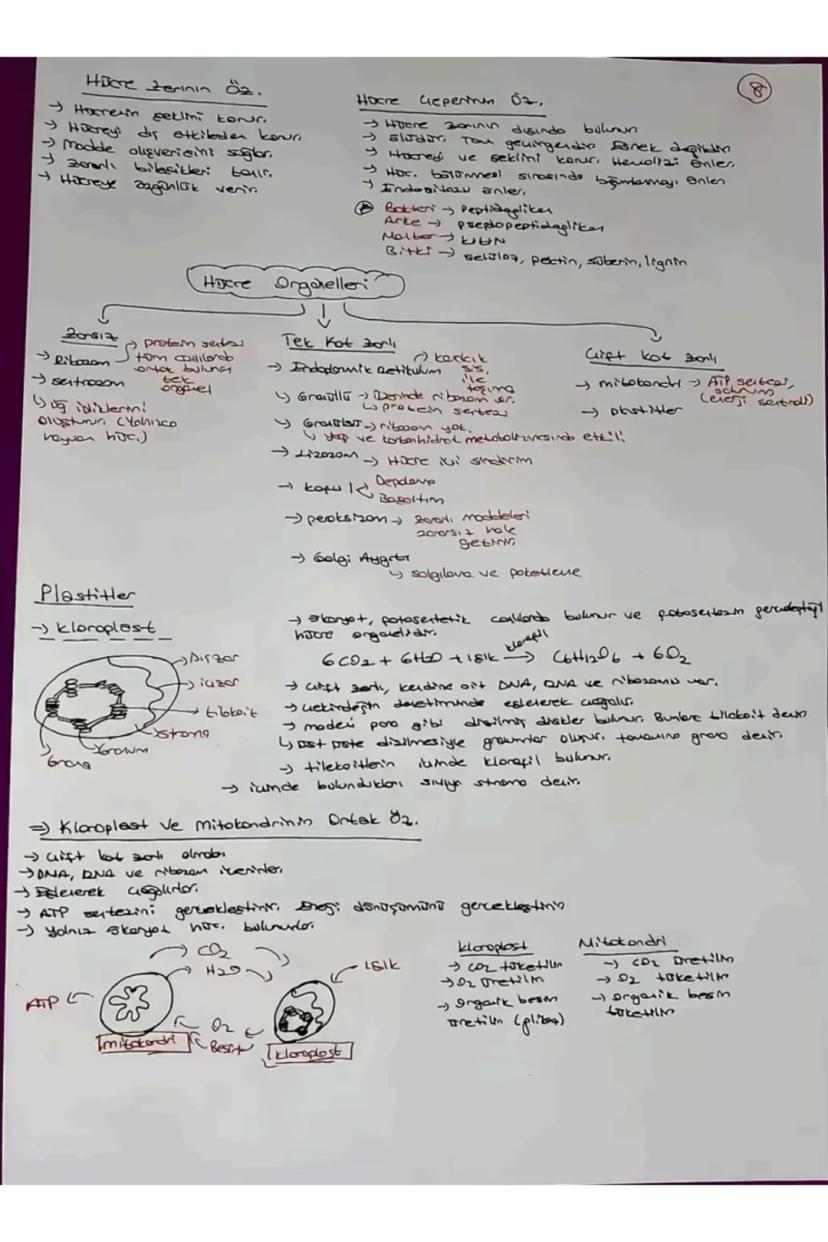 8
Hücre Zarının Öz.
→ Hücrenin şeklini korur.
→ Hücreyi dış etkilerden korur.
→ Madde alışverişini sağlar.
→ Zararlı bileşikleri tanır.
→ Hücreye özgünlük verir.
Hücre Çeperinin Öz.
→ Hücre zarının dışında bulunur
→ Ölüdür. Tam geçirgendir. Esnek değildir.
→ Hücreyi ve şeklini korur. Hemolizi önler.
→ Hüc. bölünmesi sırasında boğumlanmayı önler
→ Endositozu önler.
Bakteri → Peptidoglikan
Arke → pseudopeptidoglikan
Mantar → kitin
Bitki → selüloz, pektin, süberin, lignin
Hücre Organelleri
Zarsız
→ Ribozom → protein sentezi
tüm canlılarda
ortak bulunan
tek
organel
→ sentrozom
↳ iğ ipliklerini
oluşturur. (Yalnızca
hayvan hüc.)
Tek Kat zarlı
→ Endoplazmik Retikulum → kanalcık
sis.
ile
taşıma
↳ Granüllü → Üzerinde ribozom var.
↳ protein sentezi
↳ Granülsüz → ribozom yok.
↳ yağ ve karbonhidrat metabolizmasında etkili
→ Lizozom → Hücre içi sindirim
→ Koful Depolama
Boşaltım
→ peroksizom → zararlı maddeleri
zararsız hale
getirir.
→ Golgi Aygıtı
↳ salgılama ve paketleme
Çift kat zarlı
→ mitokondri → ATP sentezi,
solunum
(enerji santrali)
→ plastitler
Plastitler
→ kloroplast
Dış zar
iç zar
tilakoit
stroma
Granum
Grana
→ Ökaryot, fotosentetik canlılarda bulunur ve fotosentezin gerçekleştiği
hücre organelidir.
6CO2 + 6H2O + ışık klorofil → C6H12O6 + 6O2
→ Çift zarlı, kendine ait DNA, RNA ve ribozomu var.
→ Çekirdeğin denetiminde eşlenerek çoğalır.
→ madeni para gibi dizilmiş diskler bulunur. Bunlara tilakoit denir
↳ üst üste dizilmesiyle granumlar oluşur. tamamına grana denir.
→ tilakoitlerin içinde klorofil bulunur.
→ içinde bulundukları sıvıya stroma denir.
⇒ Kloroplast ve Mitokondrinin Ortak Öz.
→ Çift kat zarlı olmaları
→ DNA, RNA ve ribozom içerirler.
→ Eşlenerek çoğalırlar.
→ ATP sentezini gerçekleştirir. Enerji dönüşümünü gerçekleştirir
→ Yalnız ökaryot hüc. bulunurlar.
CO2
H2O
Işık
ATP
O2
Besin
mitokondri
kloroplast
kloroplast
→ CO2 tüketilir
→ O2 üretilir
→ Organik besin
üretilir (glikoz)
Mitokondri
→ CO2 üretilir
→ O2 tüketilir
→ Organik besin
tüketilir